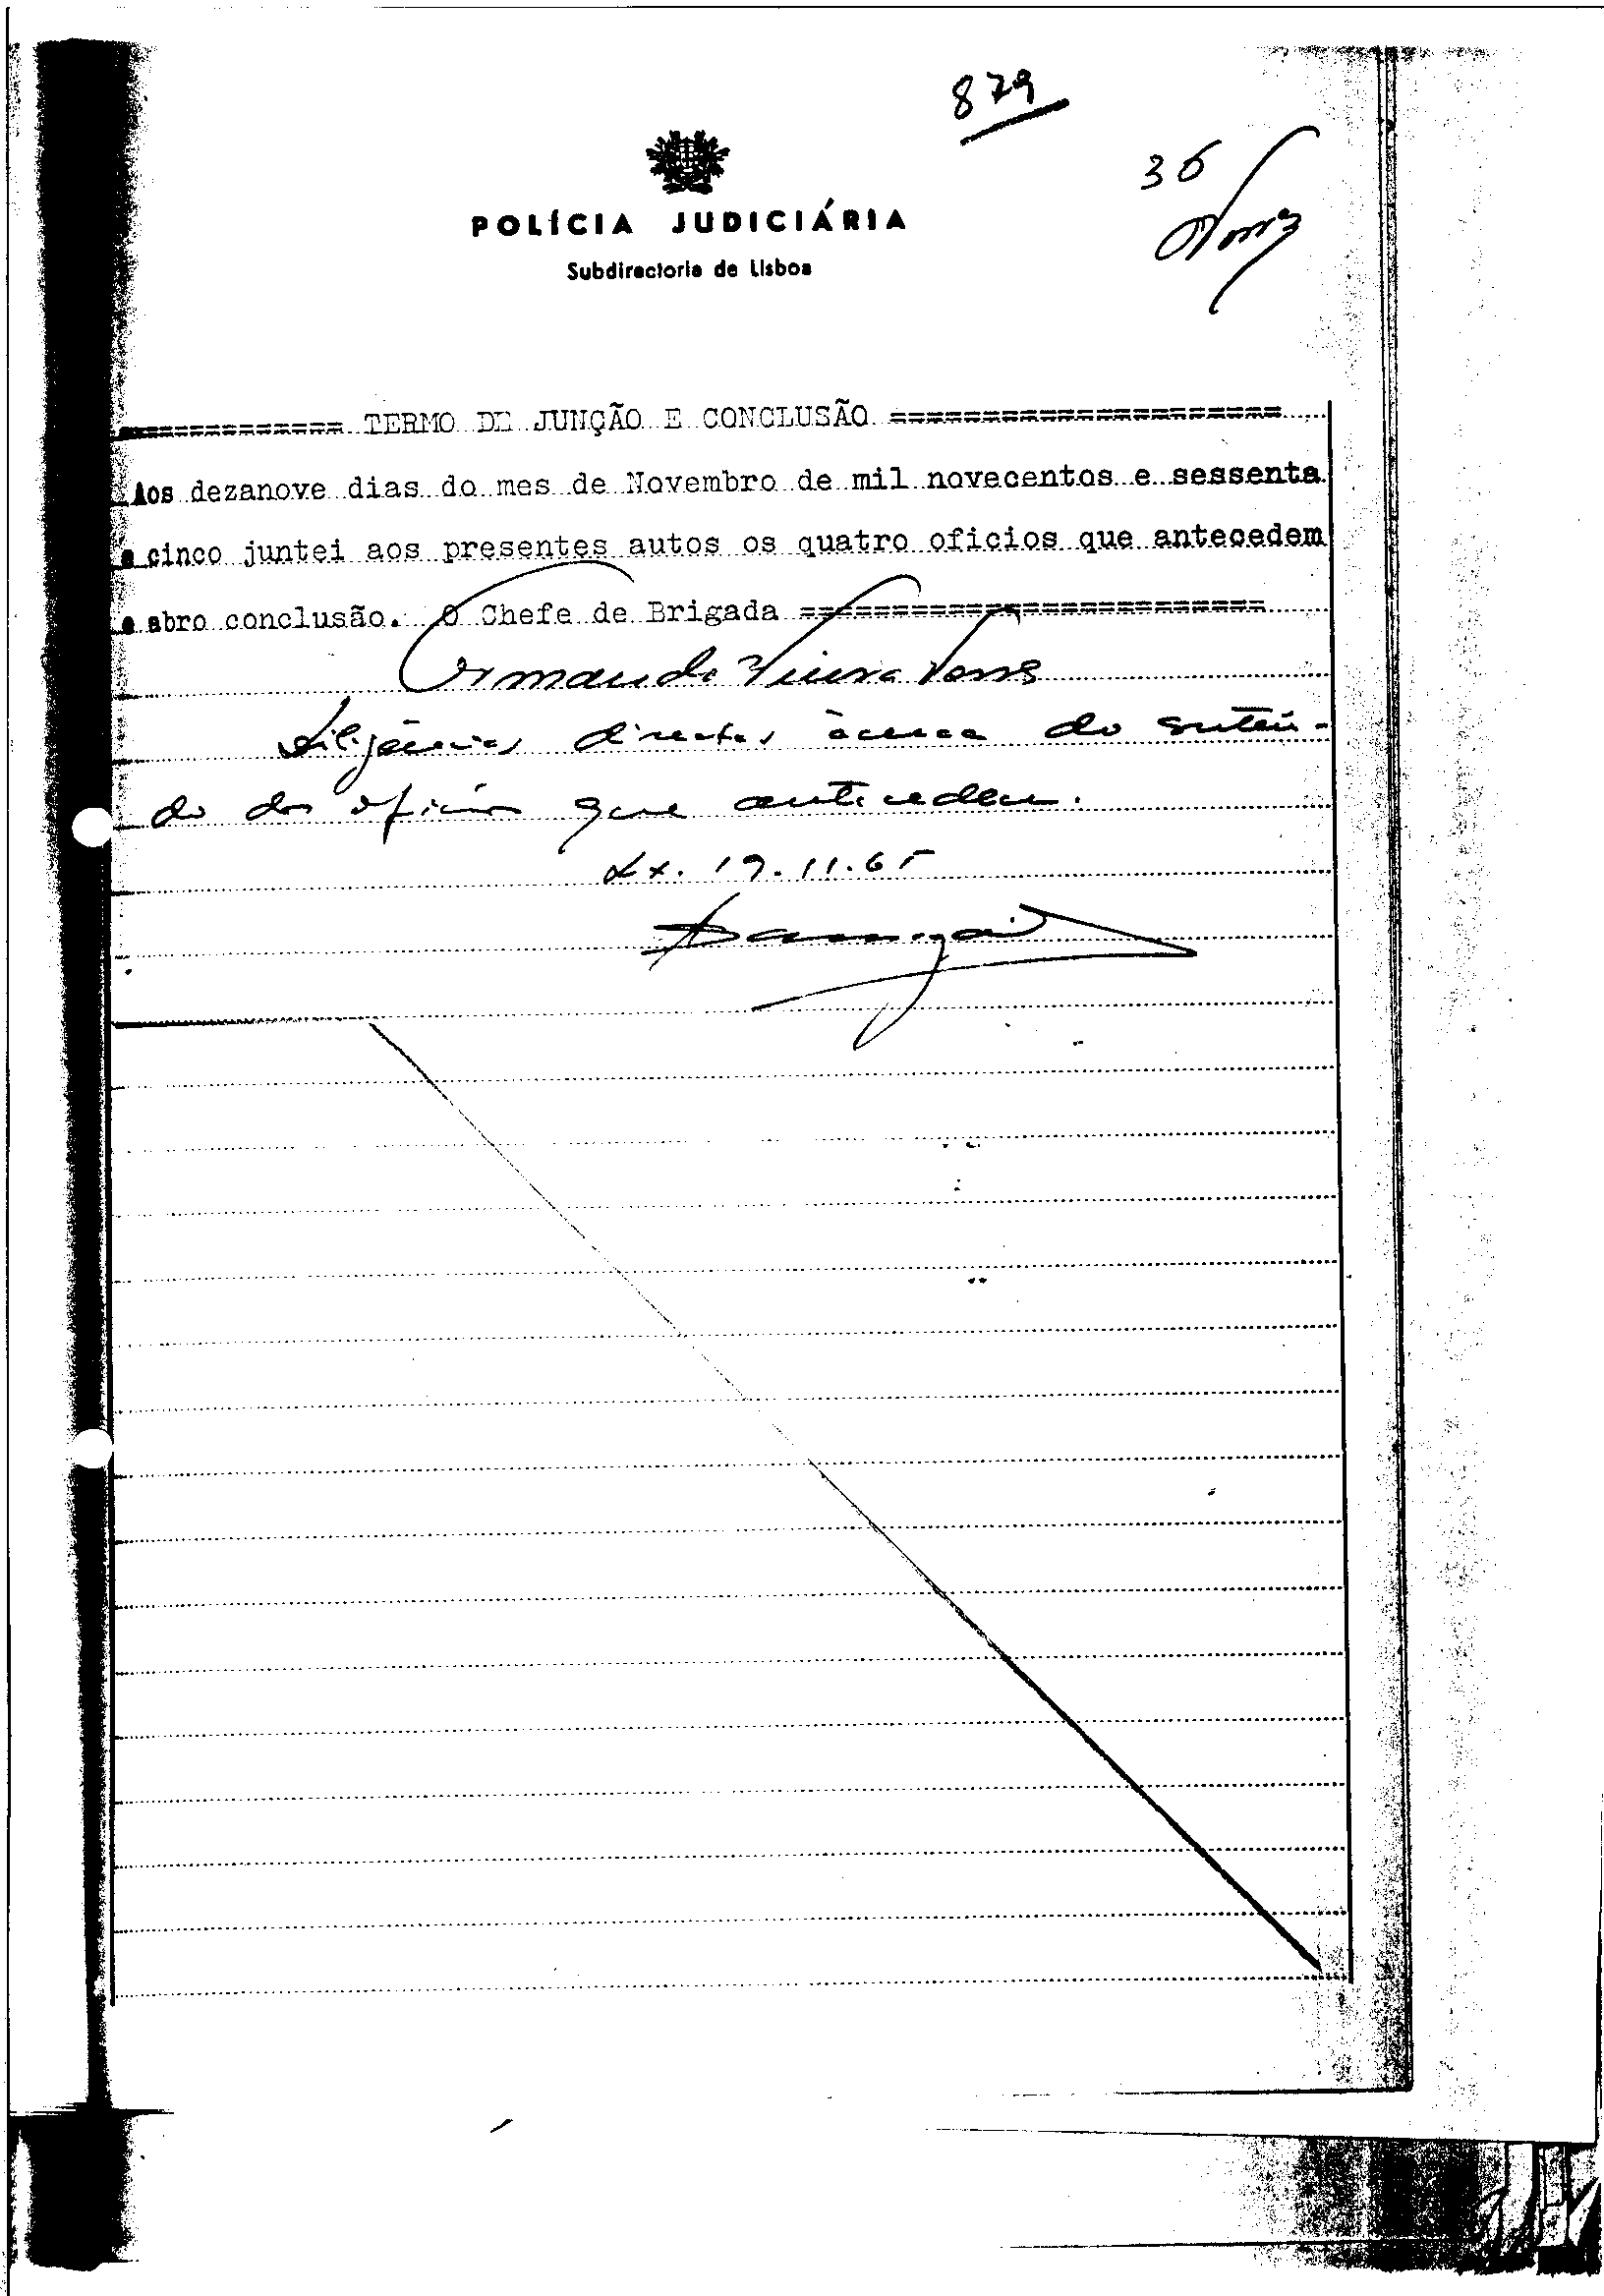 879
36
POLÍCIA JUDICIÁRIA
Subdirectoria de Lisboa
============ TERMO DE JUNÇÃO E CONCLUSÃO =====================
Aos dezanove dias do mes de Novembro de mil novecentos e sessenta
e cinco juntei aos presentes autos os quatro oficios que antecedem
e abro conclusão. O Chefe de Brigada =========================
Armando Vieira Torres
Diligências directas àcerca do conteú-
do dos ofícios que antecedem.
Lx. 19.11.65